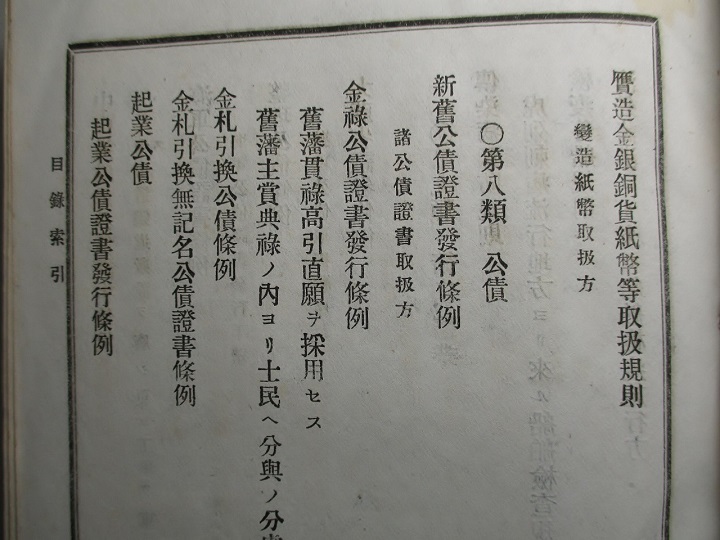 贋造金銀銅貨紙幣等取扱規則
變造紙幣取扱方
〇第八類 公債
新舊公債證書發行條例
諸公債證書取扱方
金祿公債證書發行條例
舊藩貫祿高引直願ヲ採用セス
舊藩主賞典祿ノ內ヨリ士民ヘ分與ノ分
金札引換公債條例
金札引換無記名公債證書條例
起業公債
起業公債證書發行條例
目錄索引